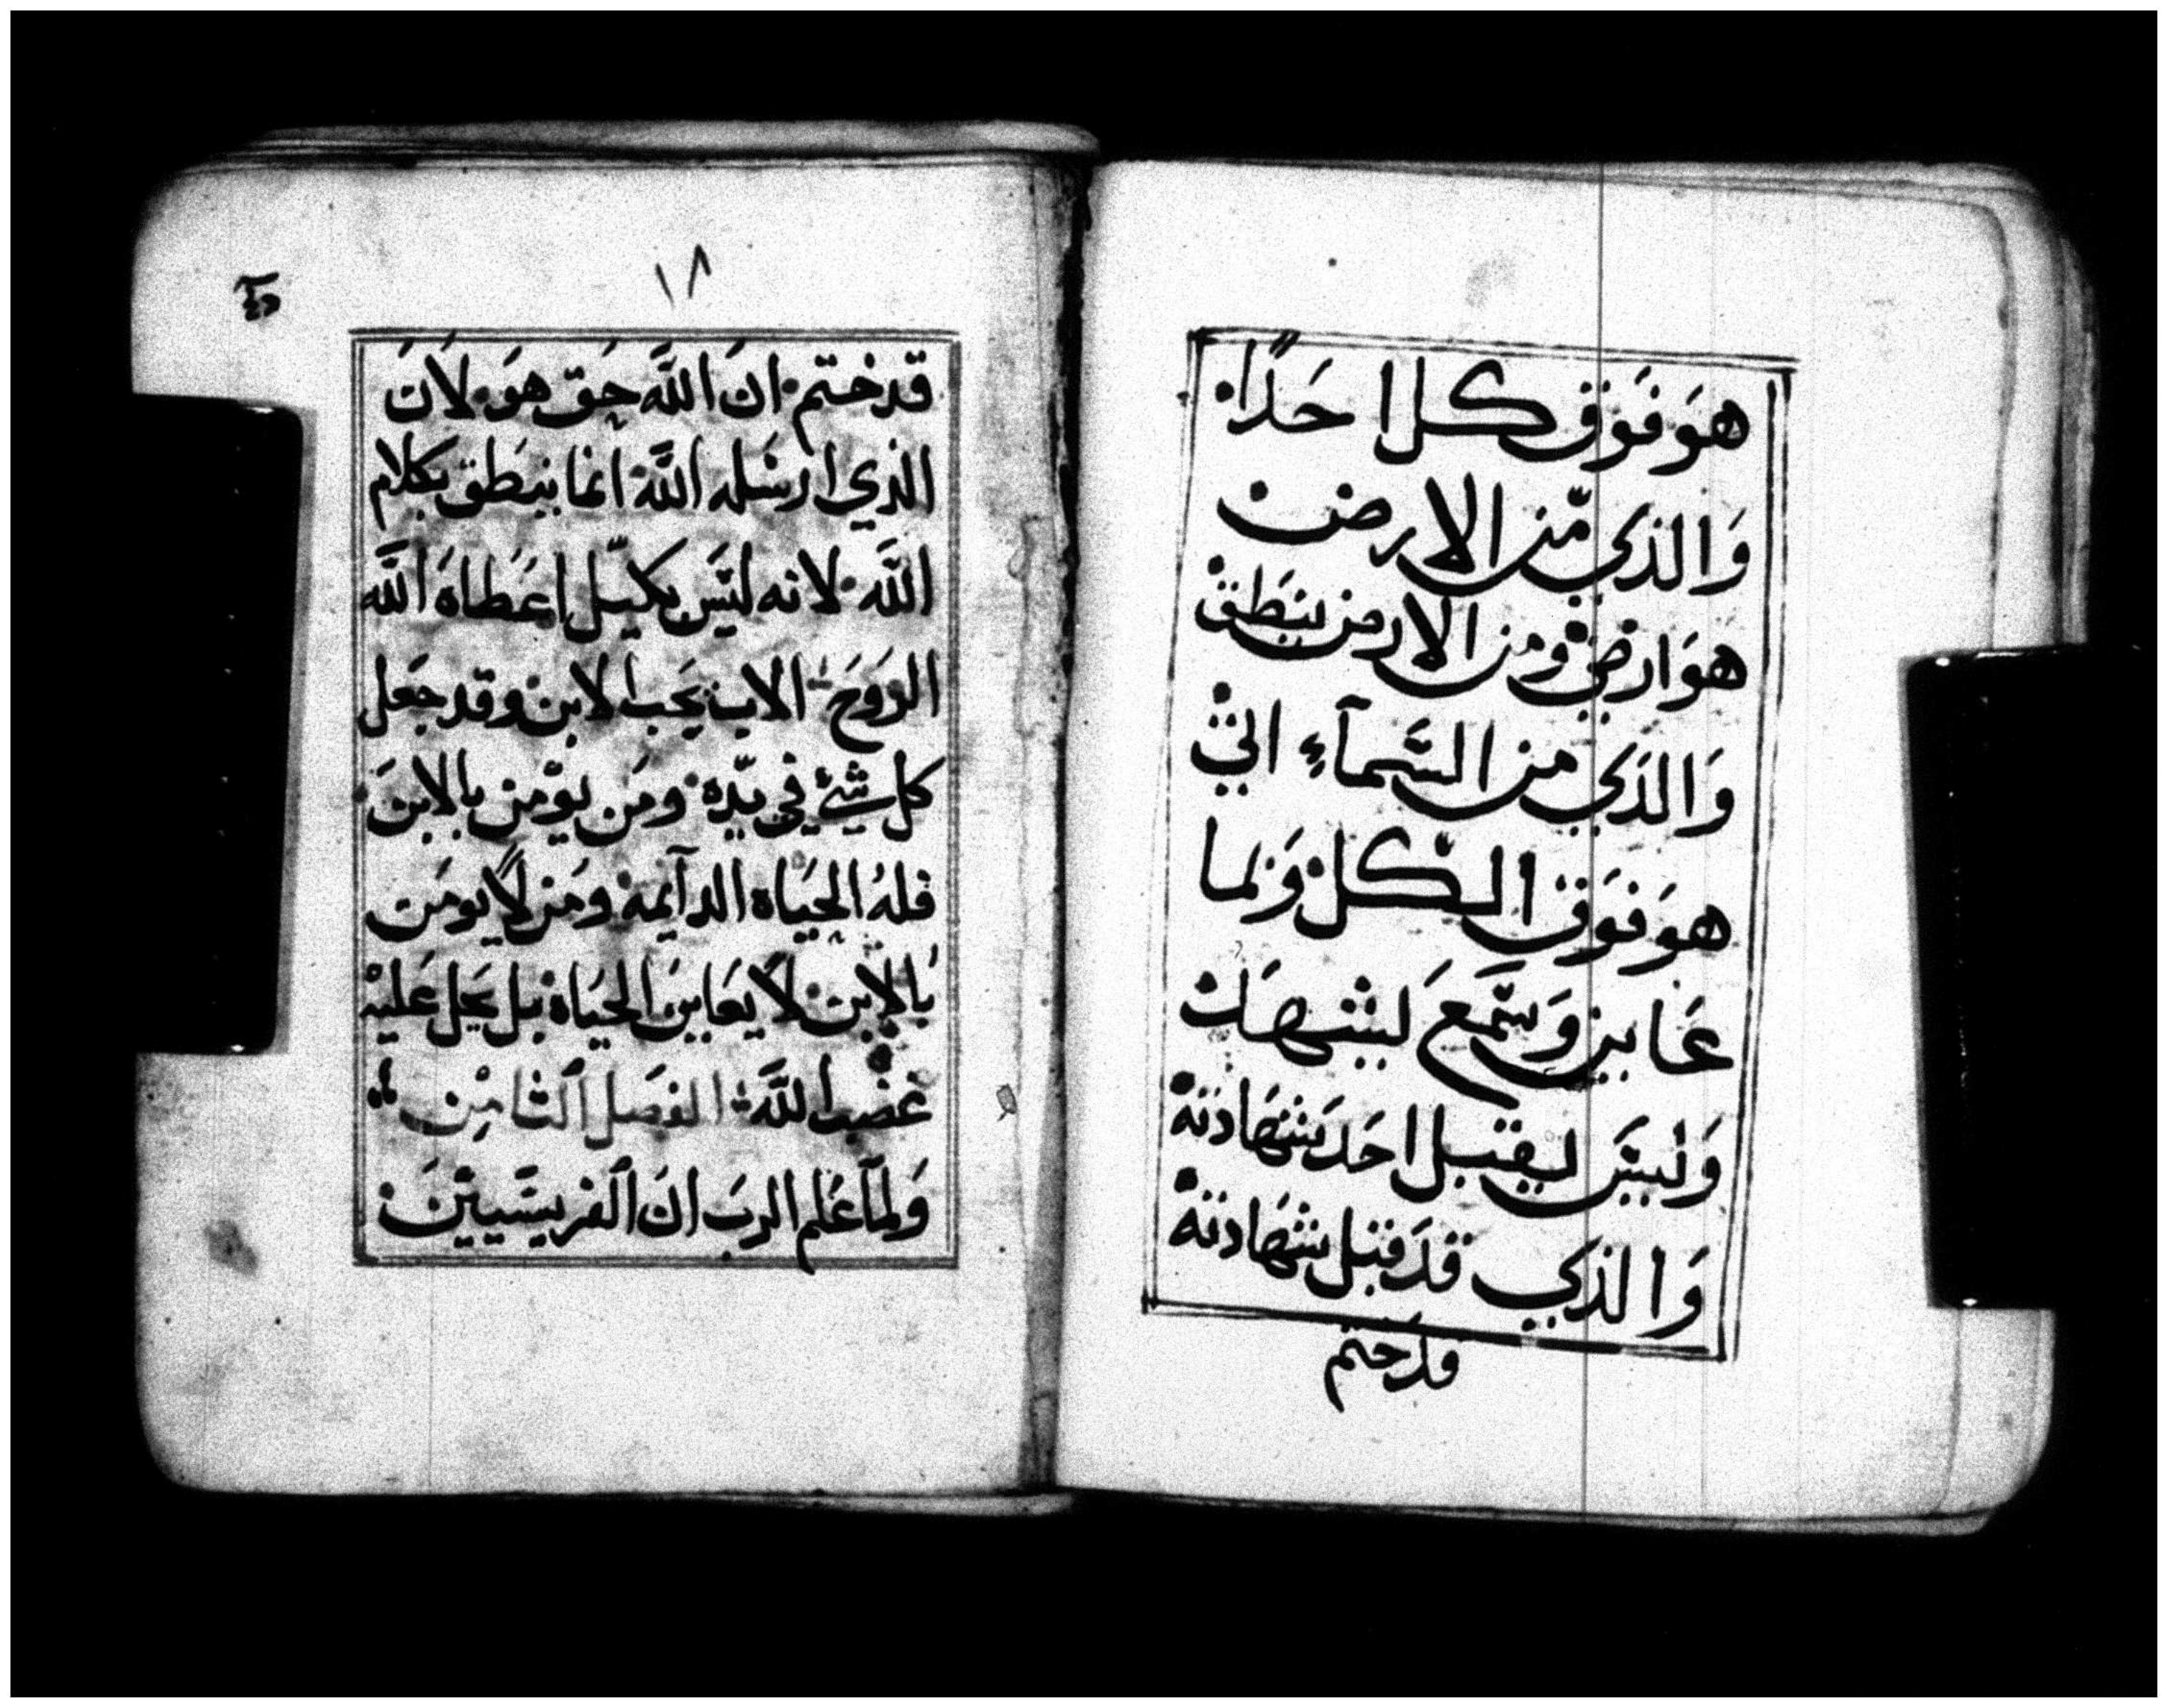 هوَ فوَق كل احَدًا
وَالذي مّن الارض
هوَ ارضي ومن الارض ينطق
وَالذَي من السَّمآءِ اتي
هوَ فوَق الكّل وَبما
عَاين وَسَّمعَ ليشهَد
وَليسَ ليقبل احَد شهَادته
وَالذي قدَ قبل شهَادته
قدَ ختم
١٨
قد ختم ان اللَّه حَق هوَ لاَنَ
الذي ارسَله اللَّه انما ينطَق بكلام
اللَّه لانه ليَس بكيّل اعَطاهَ اللَّه
الروَحَ الاب يحَب الابن وقد جعَل
كل شئ في يدّه ومَن يوّمن بالابنَ
فلهُ الحيَاه الدآيمه ومَن لاً يومَن
بالابن لاَ يعَاينَ الحيَاة بل يحَل عَليه
غضب اللَّه الفصَل الثامِن
وَلمآ عَلم الربَ انَ الفريسَّييّنَ